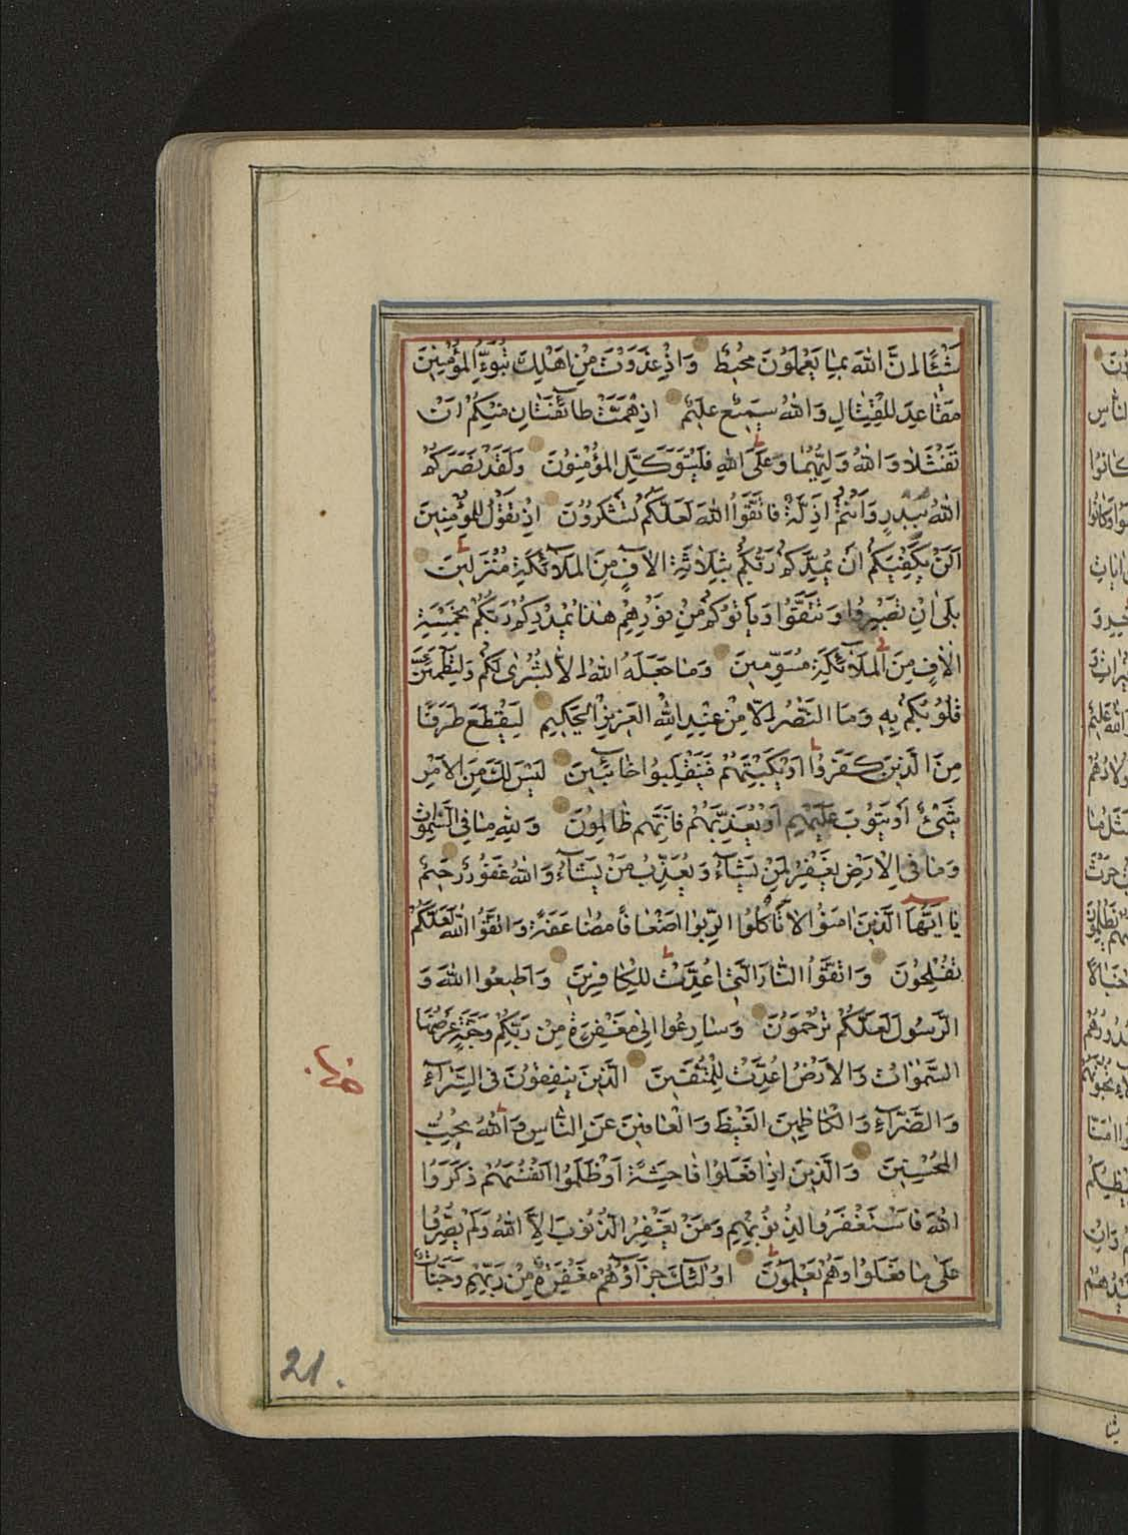 شَيْئًا اِنَّ اللهَ بِمٰا يَعْمَلُونَ مُحيطٌ وَاِذْ غَدَوْتَ مِنْ اَهْلِكَ تُبَوِّءُ الْمُؤْمِنينَ
مَقٰاعِدَ لِلْقِتٰالِ وَاللهُ سَميعٌ عَليمٌ اِذْ هَمَّتْ طٰائِفَتٰانِ مِنْكُمْ اَنْ
تَفْشَلاٰ وَاللهُ وَلِيُّهُمٰا وَعَلَى اللهِ فَلْيَتَوَكَّلِ الْمُؤْمِنُونَ وَلَقَدْ نَصَرَكُمُ
اللهُ بِبَدْرٍ وَاَنْتُمْ اَذِلَّةٌ فَاتَّقُوا اللهَ لَعَلَّكُمْ تَشْكُرُونَ اِذْ تَقُولُ لِلْمُؤْمِنينَ
اَلَنْ يَكْفِيَكُمْ اَنْ يُمِدَّكُمْ رَبُّكُمْ بِثَلاٰثَةِ اٰلاٰفٍ مِنَ الْمَلاٰۤئِكَةِ مُنْزَلينَ
بَلىٰ اِنْ تَصْبِرُوا وَتَتَّقُوا وَيَاْتُوكُمْ مِنْ فَوْرِهِمْ هٰذٰا يُمْدِدْكُمْ رَبُّكُمْ بِخَمْسَةِ
اٰلاٰفٍ مِنَ الْمَلاٰۤئِكَةِ مُسَوِّمينَ وَمٰا جَعَلَهُ اللهُ اِلاّٰ بُشْرىٰ لَكُمْ وَلِتَطْمَئِنَّ
قُلُوبُكُمْ بِهِ وَمَا النَّصْرُ اِلاّٰ مِنْ عِنْدِ اللهِ الْعَزيزِ الْحَكيمِ لِيَقْطَعَ طَرَفًا
مِنَ الَّذينَ كَفَرُوا اَوْ يَكْبِتَهُمْ فَيَنْقَلِبُوا خٰائِبينَ لَيْسَ لَكَ مِنَ الْاَمْرِ
شَيْءٌ اَوْ يَتُوبَ عَلَيْهِمْ اَوْ يُعَذِّبَهُمْ فَاِنَّهُمْ ظٰالِمُونَ وَلِلّٰهِ مٰا فِي السَّمٰوٰاتِ
وَمٰا فِي الْاَرْضِ يَغْفِرُ لِمَنْ يَشٰاۤءُ وَيُعَذِّبُ مَنْ يَشٰاۤءُ وَاللهُ غَفُورٌ رَحيمٌ
يٰا اَيُّهَا الَّذينَ اٰمَنُوا لاٰ تَاْكُلُوا الرِّبٰوا اَضْعٰافًا مُضٰاعَفَةً وَاتَّقُوا اللهَ لَعَلَّكُمْ
تُفْلِحُونَ وَاتَّقُوا النّٰارَ الَّتي اُعِدَّتْ لِلْكٰافِرينَ وَاَطيعُوا اللهَ وَ
الرَّسُولَ لَعَلَّكُمْ تُرْحَمُونَ وَسٰارِعُوا اِلىٰ مَغْفِرَةٍ مِنْ رَبِّكُمْ وَجَنَّةٍ عَرْضُهَا
السَّمٰوٰاتُ وَالْاَرْضُ اُعِدَّتْ لِلْمُتَّقينَ اَلَّذينَ يُنْفِقُونَ فِي السَّرّٰاۤءِ
وَالضَّرّٰاۤءِ وَالْكٰاظِمينَ الْغَيْظَ وَالْعٰافينَ عَنِ النّٰاسِ وَاللهُ يُحِبُّ
الْمُحْسِنينَ وَالَّذينَ اِذٰا فَعَلُوا فٰاحِشَةً اَوْ ظَلَمُوا اَنْفُسَهُمْ ذَكَرُوا
اللهَ فَاسْتَغْفَرُوا لِذُنُوبِهِمْ وَمَنْ يَغْفِرُ الذُّنُوبَ اِلاَّ اللهُ وَلَمْ يُصِرُّوا
عَلىٰ مٰا فَعَلُوا وَهُمْ يَعْلَمُونَ اُولٰۤئِكَ جَزٰاۤؤُهُمْ مَغْفِرَةٌ مِنْ رَبِّهِمْ وَجَنّٰاتٌ
21.